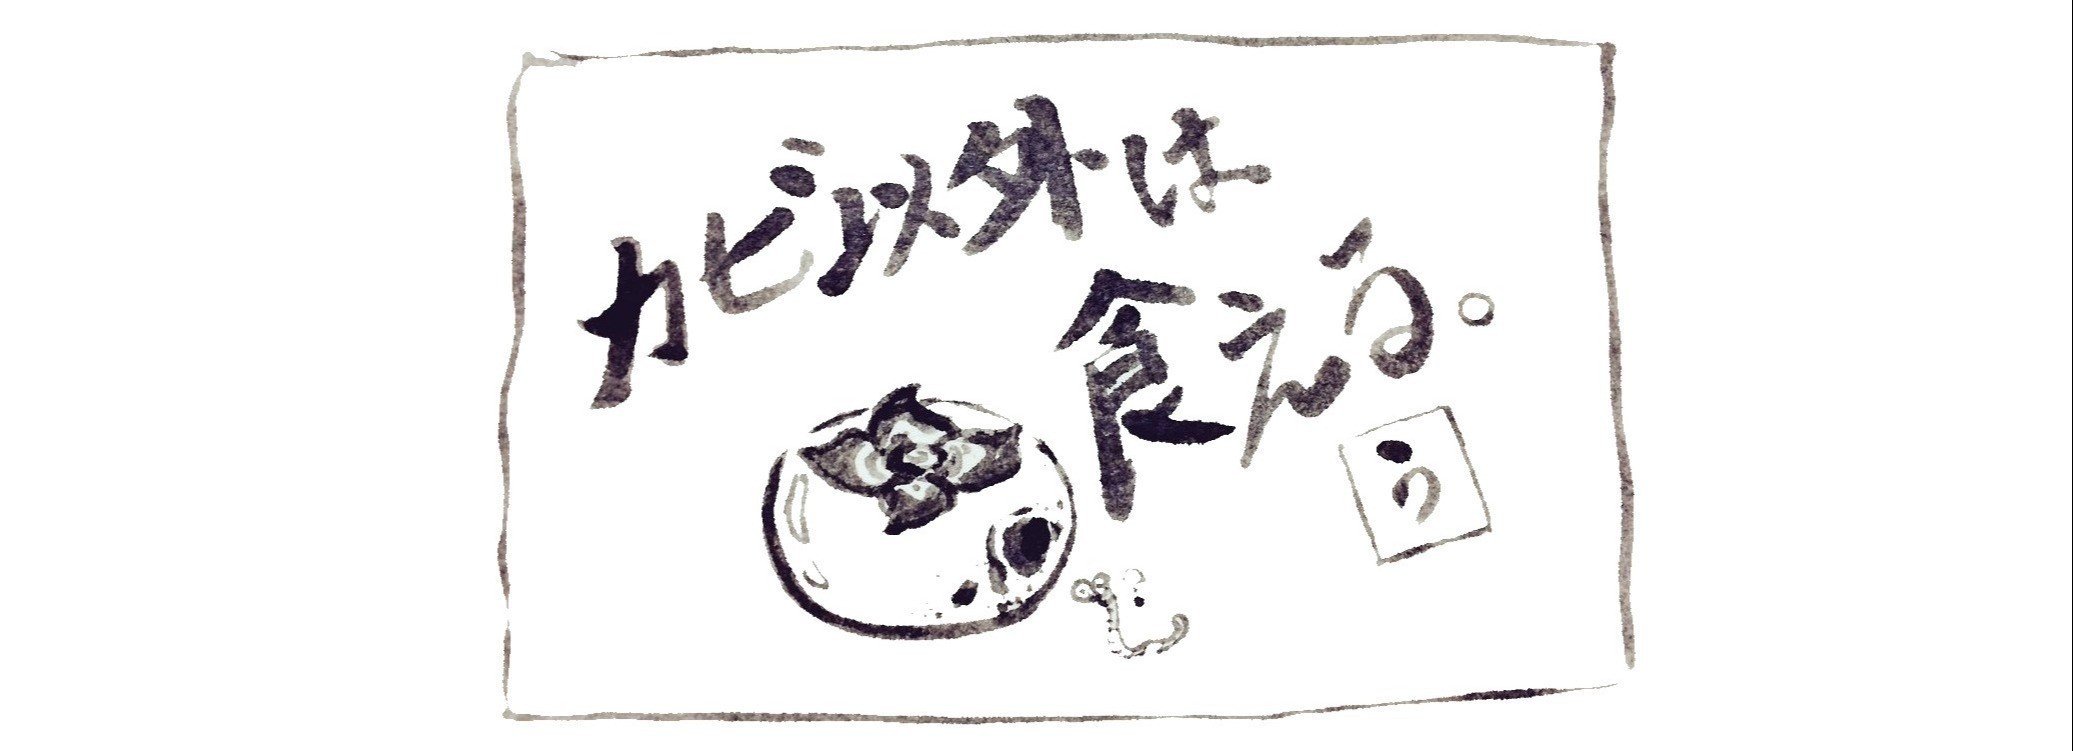 カビ以外は
食える。
う